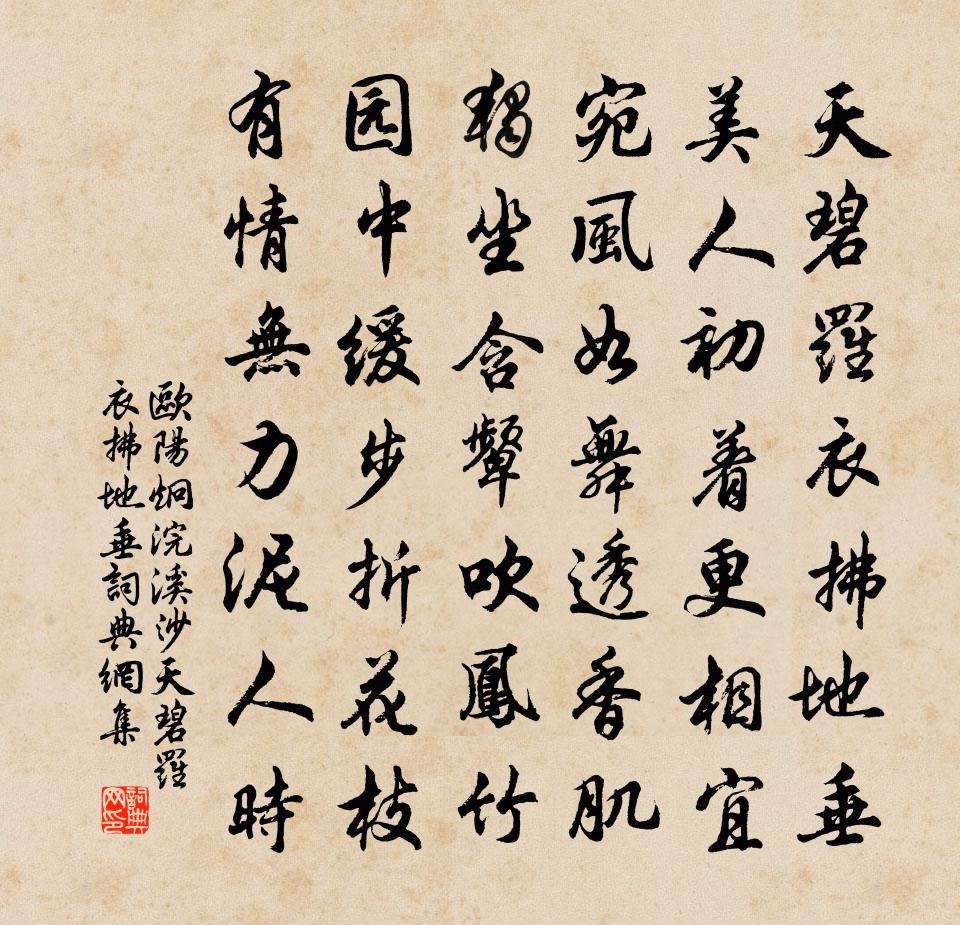 天碧羅衣拂地垂
美人初着更相宜
宛風如舞透香肌
獨坐含顰吹鳳竹
园中缓步折花枝
有情無力泥人時
歐陽炯浣溪沙天碧羅
衣拂地垂詞典網集
詞典网印